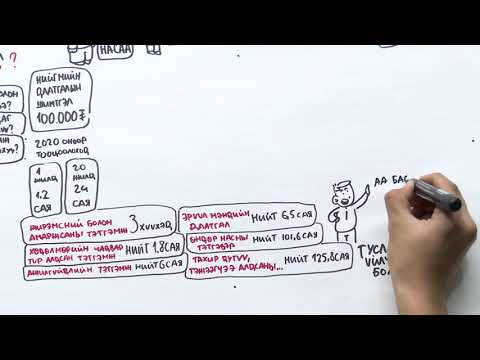 НАСАА
?
НИЙГМИЙН
ДААТГАЛЫН
ШИМТГЭЛ
100.000₮
2020 ОНООР
ТООЦООЛОХОД
1
ЖИЛД
1.2
САЯ
20
ЖИЛД
24
САЯ
ЖИРЭМСНИЙ БОЛОН
АМАРЖСАНЫ ТЭТГЭМЖ
3 ХҮҮХЭД
ХӨДӨЛМӨРИЙН ЧАДВАР
ТҮР АЛДСАН ТЭТГЭМЖ
НИЙТ 1,8 САЯ
АЖИЛГҮЙДЛИЙН ТЭТГЭМЖ НИЙТ 6 САЯ
ЭРҮҮЛ МЭНДИЙН
ДААТГАЛ
НИЙТ 65 САЯ
ӨНДӨР НАСНЫ
ТЭТГЭВЭР
НИЙТ 101,6 САЯ
ТАХИР ДУТУУ,
ТЭЖЭЭГЧЭЭ АЛДСАНЫ...
НИЙТ 125,8 САЯ
АА БАС